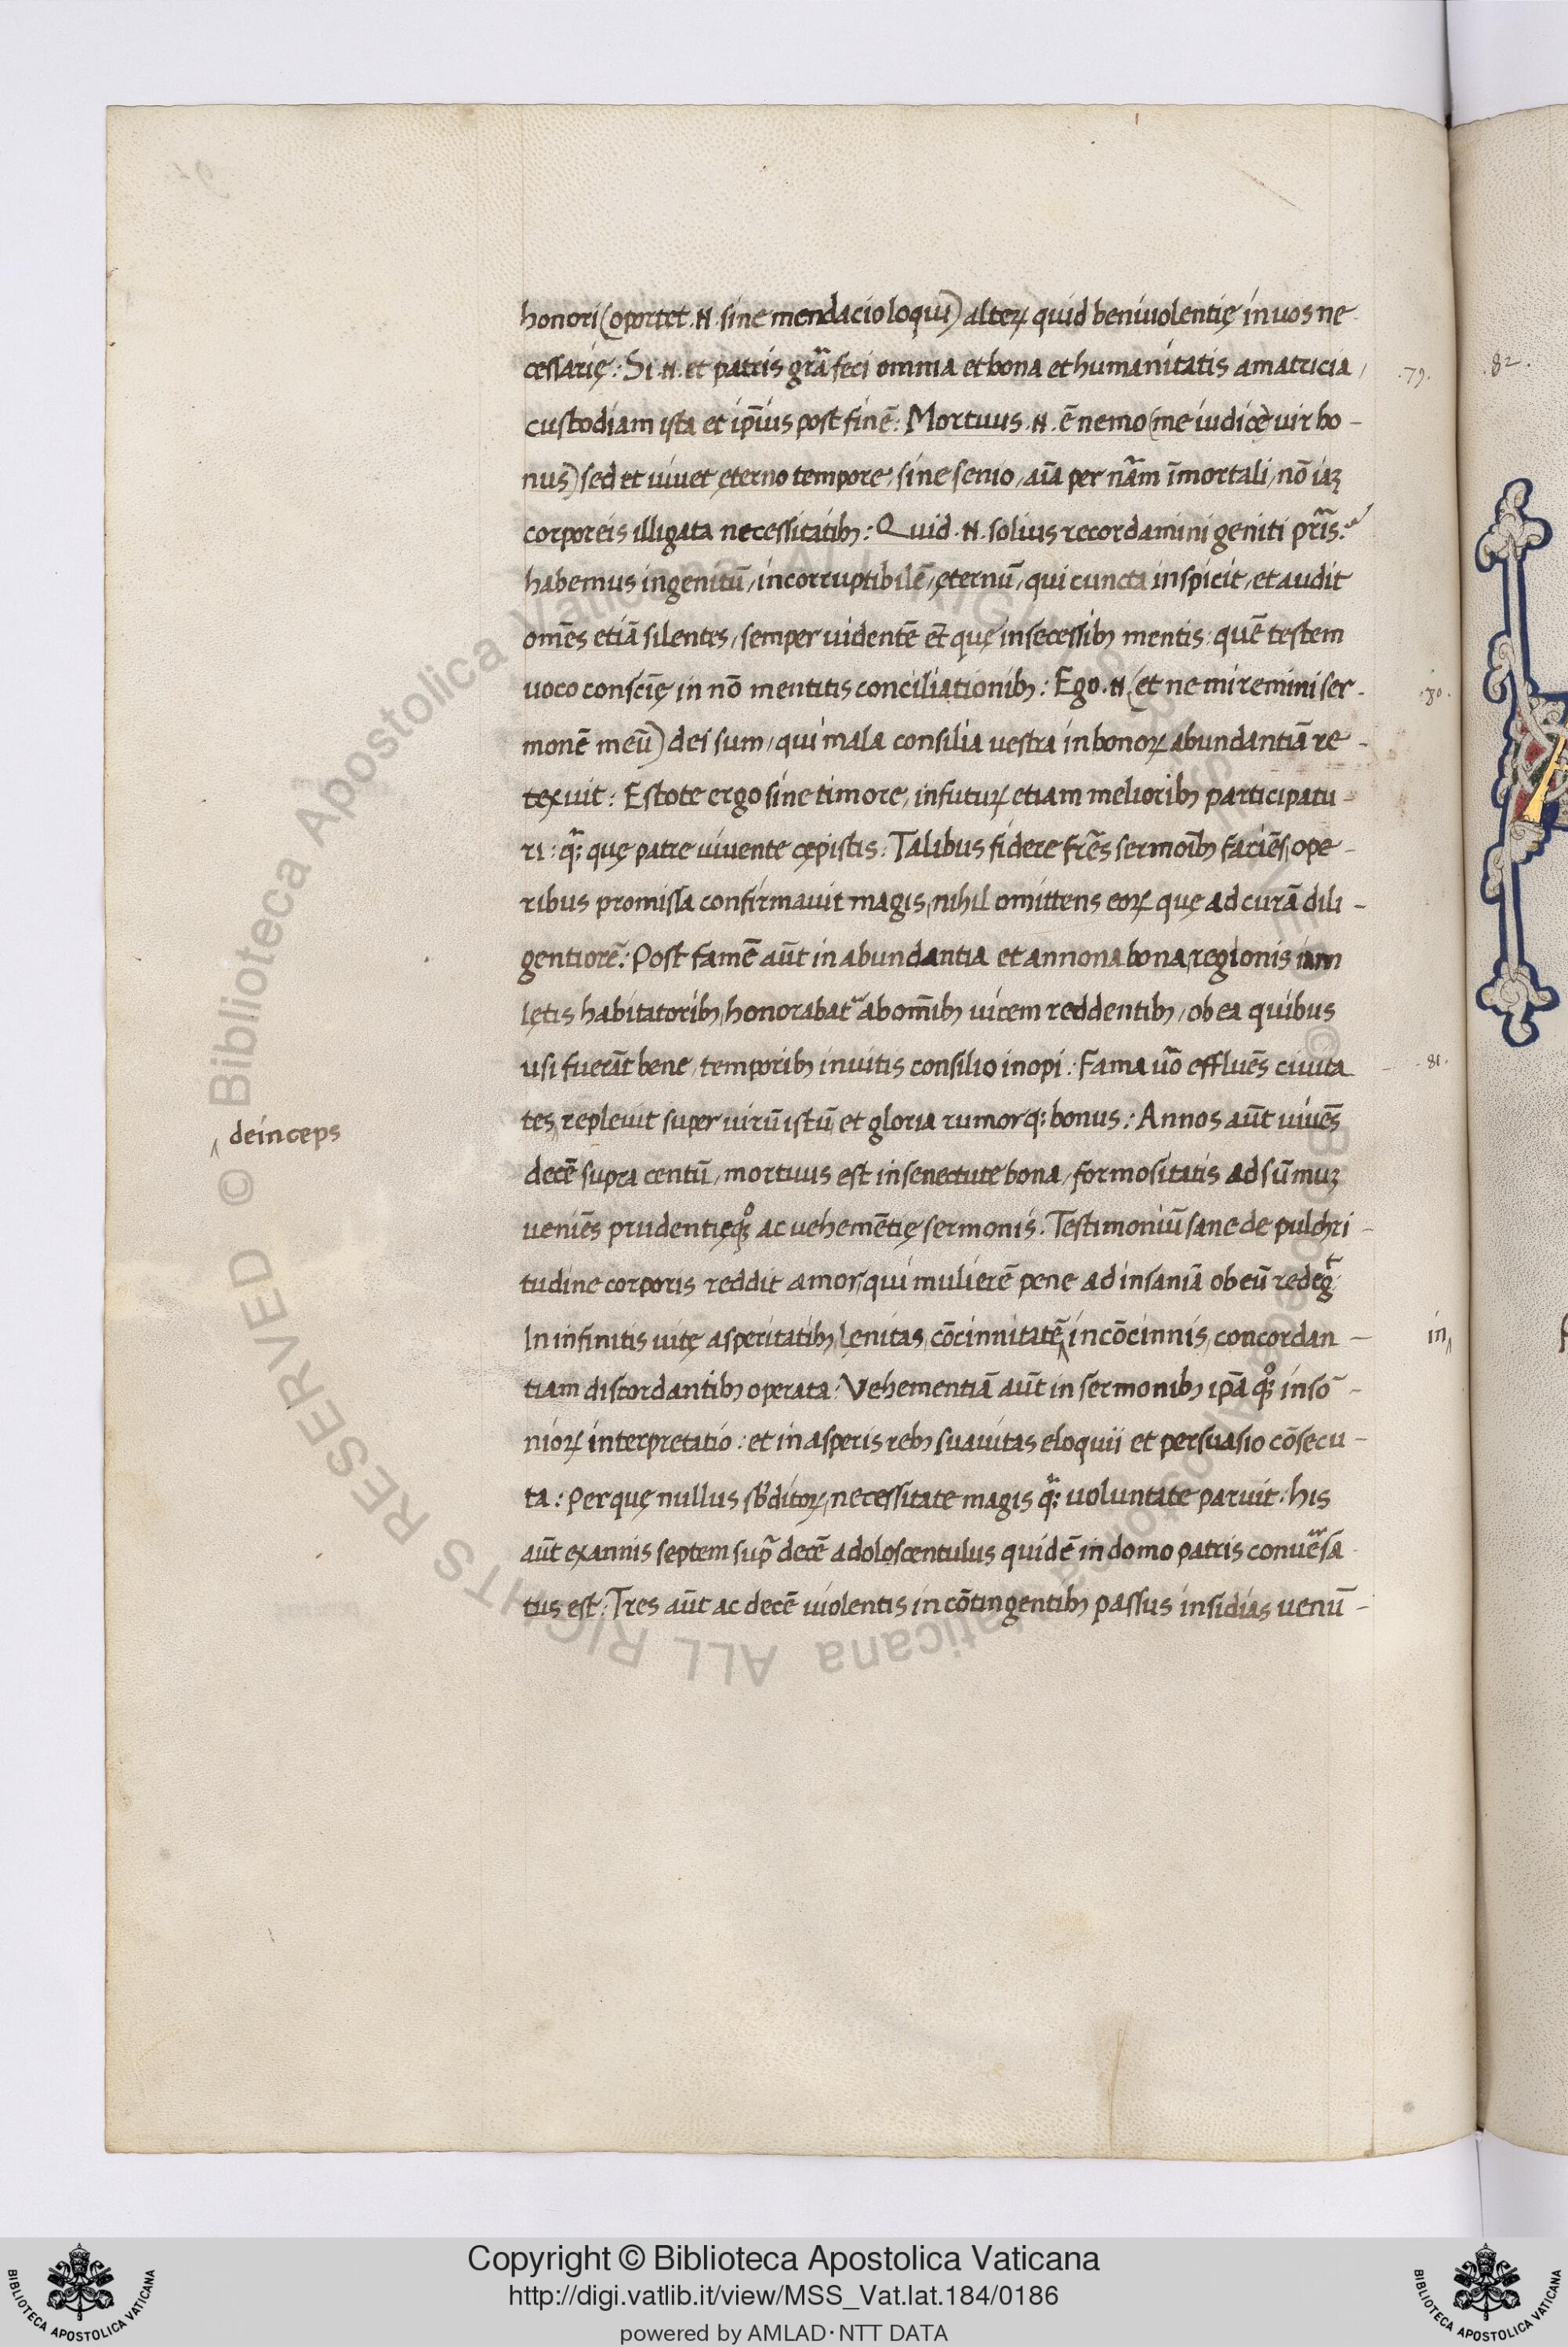 honori (oportet .N. sine mendacio loqui) alteꝝ quid beniuolentię in uos ne
cessarię: Si .N. et patris gr̃a feci omnia et bona et humanitatis amatricia,
custodiam ista et ip̃ius post finẽ: Mortuus .N. ẽ nemo (me iudice) uir bo-
nus) sed et uiuet ęterno tempore, sine senio, aĩa per nãm ĩmortali, nõ iaꝫ
corporeis illigata necessitatibꝫ: Quid .N. solius recordamini geniti pr̃is:
habemus ingenitũ, incorruptibilẽ, ęternũ, qui cuncta inspicit, et audit
omẽs etiã silentes, semper uidentẽ et̃ quę in secessibꝫ mentis: quẽ testem
uoco consciẽ in nõ mentitis conciliationibꝫ: Ego .N. (et ne miremini ser-
monẽ meũ) dei sum, qui mala consilia uestra in bonoꝝ abundantiã re-
texuit: Estote ergo sine timore, in futuꝝ etiam melioribꝫ participatu-
ri: q̃ꝫ quę patre uiuente cępistis: Talibus fidere frẽs sermoĩbꝫ faciẽs, ope-
ribus promissa confirmauit magis, nihil omittens eoꝝ quę ad curã dili-
gentiorẽ: Post famẽ aũt in abundantia et annona bona, regionis iam
lętis habitatoribꝫ, honorabat᷑ ab om̃ibꝫ uicem reddentibꝫ, ob ea quibus
usi fuerãt bene, temporibꝫ inuitis consilio inopi: Fama ũo effluẽs ciuita
tes, repleuit super uirũ istũ, et gloria rumorqꝫ bonus: Annos aũt uiuẽs
decẽ supra centũ, mortuus est in senectute bona, formositatis ad sũmuꝫ
ueniẽs prudentięqꝫ̊ ac uehemẽtię sermonis: Testimoniũ sane de pulchri-
tudine corporis reddit amor, qui mulierẽ pene ad insaniã ob eũ redegᵗ
In infinitis uitę asperitatibꝫ, Lęnitas, cõcinnitatẽ ‸ incõcinnis, concordan-
tiam discordantibꝫ operata: Vehementiã aũt in sermonibꝫ ip̃a qꝫ̊ inso-
nioꝝ interpretatio: et in asperis rebꝫ suauitas eloquii et persuasio cõsecu-
ta: Per quę nullus sb̃ditoꝝ, necessitate magis q̃ꝫ uoluntate paruit: his
aũt ex annis septem sup̃ decẽ adoloscentulus quidẽ in domo patris conuer̃sa
tus est: Tres aũt ac decẽ uiolentis in cõtingentibꝫ passus insidias uenũ-
‸ deinceps
.79.
.80.
.81.
in‸
.82.
Copyright © Biblioteca Apostolica Vaticana
http://digi.vatlib.it/view/MSS_Vat.lat.184/0186
powered by AMLAD·NTT DATA
BIBLIOTECA APOSTOLICA VATICANA
BIBLIOTECA APOSTOLICA VATICANA
© Biblioteca Apostolica Vaticana ALL RIGHTS RESERVED © Biblioteca Apostolica Vaticana ALL RIGHTS RESERVED